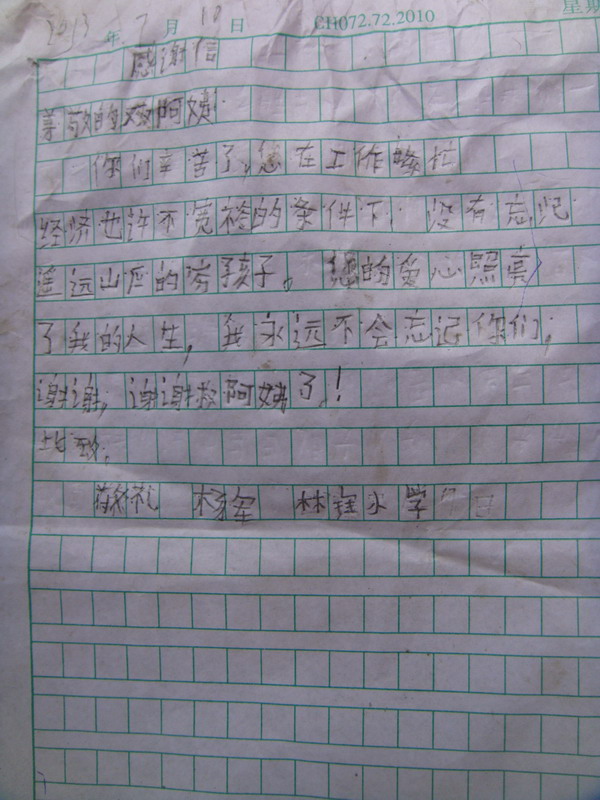 2013 年 7 月 10 日 CH072.72.2010 星期
感谢信
尊敬的 阿姨:
你们辛苦了,您在工作 忙
经济也许不宽裕的条件下. 没有忘记
遥远山区的穷孩子。 您的爱心照亮
了我的人生, 我永远不会忘记你们,
谢谢, 谢谢 阿姨了!
此致,
敬礼 杨军 林 小学